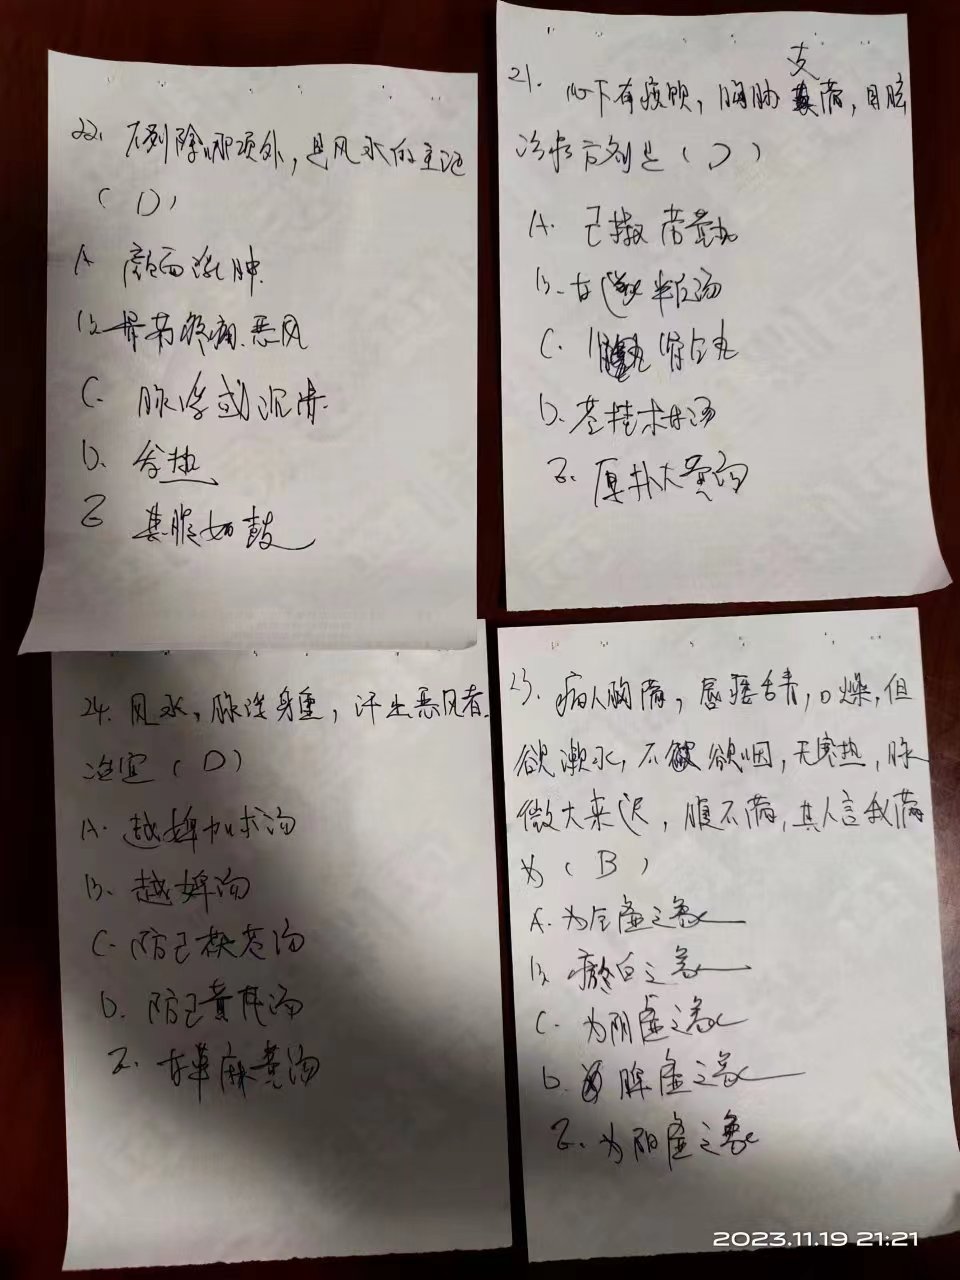 22. 下列除哪项外，是风水的主证
（D）
A 颜面浮肿.
B. 骨节疼痛.恶风
C. 脉浮或沉滑.
D. 发热
E 其腹如鼓
21. 心下有痰饮，胸胁支满，目眩
治疗方剂是（D）
A. 己椒苈黄丸
B. 甘遂半夏汤
C. 肾气丸
D. 苓桂术甘汤
E. 厚朴大黄汤
24. 风水，脉浮身重，汗出恶风者.
治宜（D）
A. 越婢加术汤
B. 越婢汤
C. 防己茯苓汤
D. 防己黄芪汤
E. 甘草麻黄汤
23. 病人胸满，唇痿舌青，口燥，但
欲漱水，不欲咽，无寒热，脉
微大来迟，腹不满，其人言我满
为（B）
A. 为气虚之象
B. 瘀血之象
C. 为阴虚之象
D. 脾虚之象
E. 为阳虚之象
2023.11.19 21:21